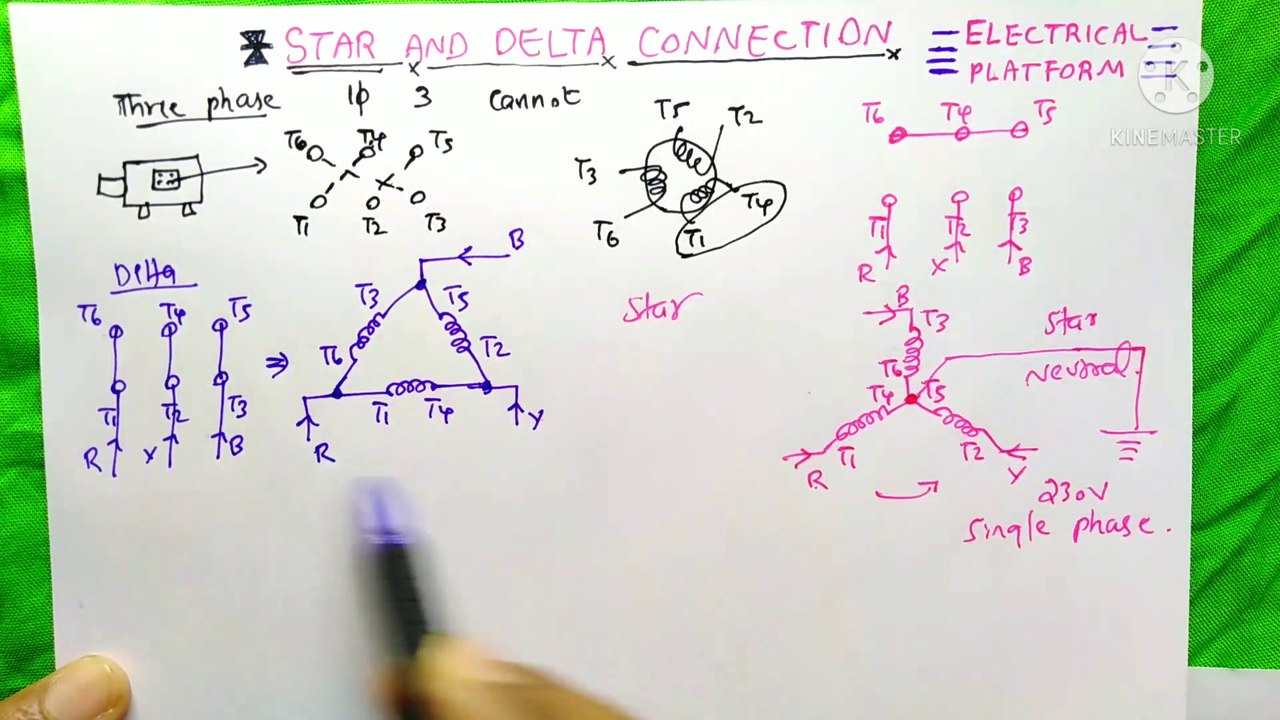 STAR AND DELTA CONNECTION
ELECTRICAL
PLATFORM
KINEMASTER
Three phase 1φ 3 cannot
T6 T4 T5
T1 T2 T3
T5 T2
T3
T4
T6 T1
T6 T4 T5
T1 T2 T3
R B
Delta
T6 T4 T5
T1 T2 T3
R B
B
T3 T5
T6 T2
T1 T4
R Y
Star
B
T3
T6
T4 T5
T1 T2
R Y
Star
230V
Single phase.